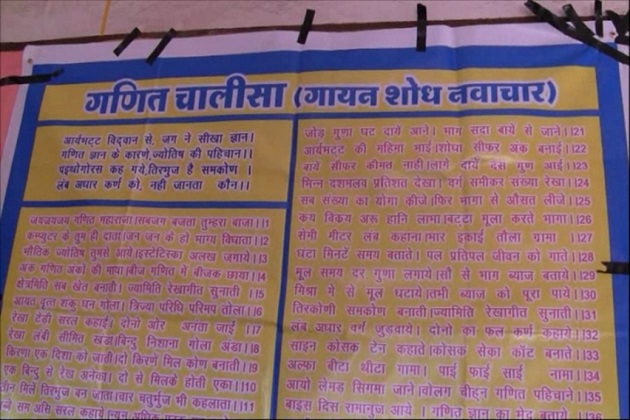 गणित चालीसा (गायन शोध नवाचार)
आर्यभटट विद्वान से, जग ने सीखा ज्ञान।
गणित ज्ञान के कारणे, ज्योतिष की पहिचान।।
पइथोगोरस कह गये, तिरभुज है समकोण ।
लंब अधार कर्ण को, नही जानता कौन।।
जयजयजय गणित महाराजा।सबजग बजता तुम्हरा बाजा।।1
कम्प्युटर के तुम ही दाता।जन जन के हो भाग्य विधाता।।2
भौतिक ज्योतिष तुमसे आये।इस्टेटिस्का अलख जगाये।।3
अंक गणित अंको की माया।बीज गणित में बीजक छाया।।4
क्षेत्रमिति सब खेत बनाती। ज्यामिति रेखागीत सुनाती।।5
आयत वृत्त शंकु घन गोला। त्रिज्या परिधि परिमप तोला।।6
रेखा टेडी सरल कहाई। दोनो ओर अनंता जाई।।7
रेखा लंबी सीमित खंडा।बिन्दु निशाना गोला अंडा।।8
किरणा एक दिशा को जाती।दो किरणें मिल कोण बनाती।।9
एक बिन्दु से रेख अनेका। दो से मिलके होती एका।।10
तीन मिले तिरभुज बन जाता।चार चतुर्भुज भी कहलाता।।11
जोड़ गुणा घट दायें आने। भाग सदा बायें से जाने।।21
आर्यभटट की महिमा भाई।शोधा सीफर अंक बनाई।।22
बायें सीफर कीमत नाही।लागे दायें दस गुण आई।।23
भिन्न दशमलव प्रतिशत देखा। वर्ग समीकर संख्या रेखा।।24
सब संख्या का योगा कीजे।फिर भागा से औसत लीजे।।25
कय विकय अरू हानि लाभा।बटटा मूला करते भागा।।26
सेमी मीटर लंब कहाना।भार इकाई तौला ग्रामा ।।27
घंटा मिनटें समय बताते। पल प्रतिपल जीवन को गाते।।28
मूल समय दर गुणा लगाये।सौ से भाग ब्याज बताये।।29
मिश्रा में से मूल घटाये।तभी ब्याज को पूरा पाये।।30
तिरकोणी समकोण बनाती।ज्यामिति रेखागीत सुनाती।।31
लंब अधार वर्ग जुडवाये। दोनो का फल कर्ण कहाये।।32
साइन कोसक टेन कहाते।कोसक सेका कॉट बनाते।।33
अल्फा बीटा थीटा गामा। पाई फाई साई नामा।।34
आयो लेमड सिगमा जाने।वोलग चीहन गणित पहिचाने।।35
बाइस दिस रामानुज आये । गणित ज्ञान का भेद बताये